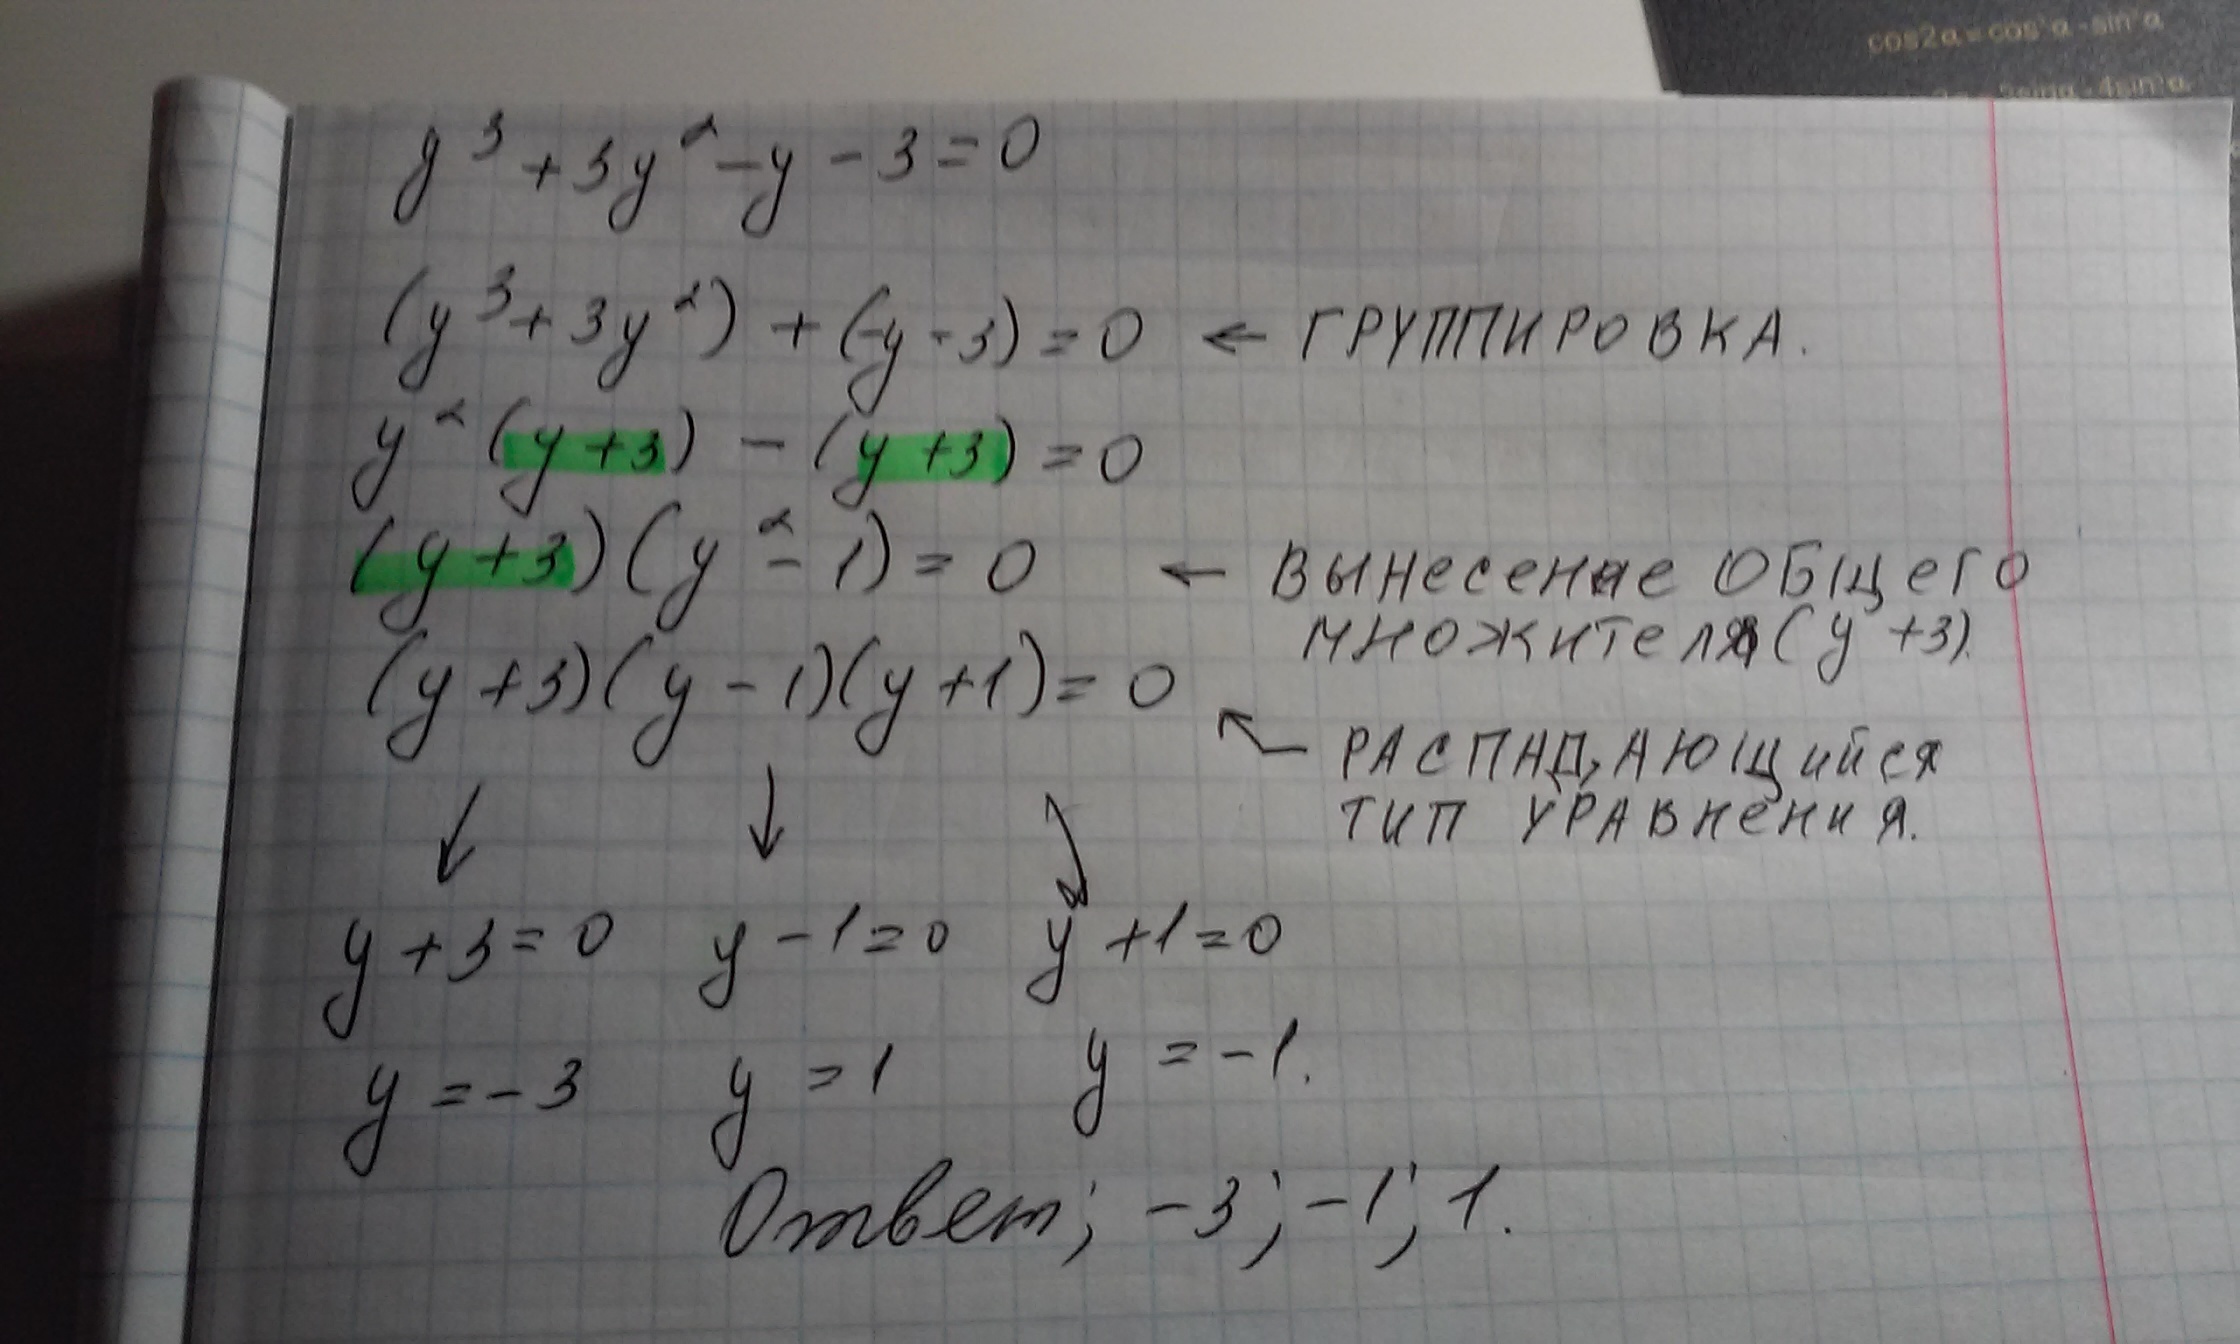 cos2α=cos²α-sin²α
3sinα-4sin³α
y³+3y²-y-3=0
(y³+3y²)+(-y-3)=0 ← ГРУППИРОВКА.
y²(y+3)-(y+3)=0
(y+3)(y²-1)=0 ← ВЫНЕСЕНИЕ ОБЩЕГО
МНОЖИТЕЛЯ (y+3).
(y+3)(y-1)(y+1)=0
РАСПАДАЮЩИЙСЯ
ТИП УРАВНЕНИЯ.
y+3=0 y-1=0 y+1=0
y=-3 y=1 y=-1.
Ответ; -3; -1; 1.